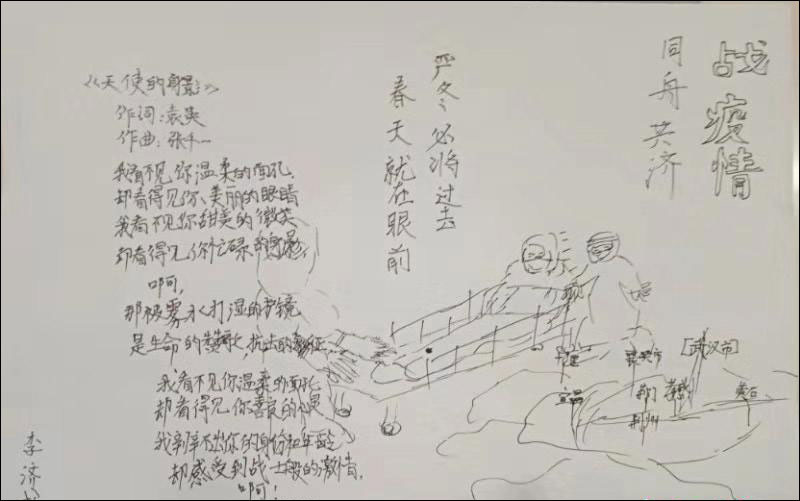 战疫情
同舟共济
严冬必将过去
春天就在眼前
《天使的身影》
作词：袁
作曲：张
我看不见你温柔的面孔，
却看得见你、美丽的眼睛
我看不见你甜美的微笑
却看得见你忙碌的身影，
啊，
那被雾水打湿的护镜
是生命的 抗击的
我看不见你温柔的面孔
却看得见你善良的
我 你的身份和年龄
却感受到战士般的激情，
啊！
李济
[武汉市]
宜昌
荆门
荆州
黄石